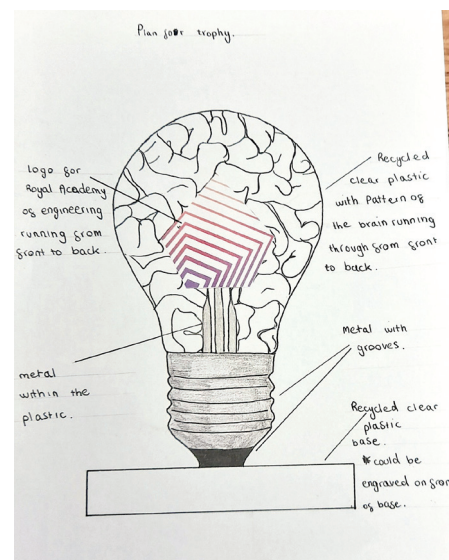 Plan for trophy.
logo for
Royal Academy
of engineering
running from
front to back.
Recycled
clear plastic
with Pattern of
the brain running
through from front
to back.
metal
within the
plastic.
Metal with
grooves.
Recycled clear
plastic
base.
*could be
engraved on
of base.